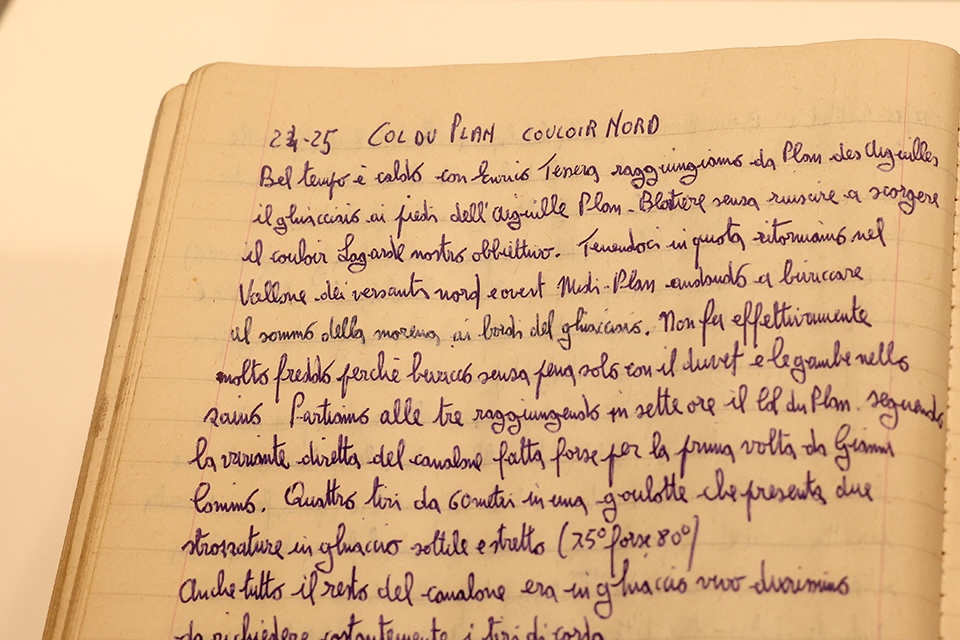 24-25 COL DU PLAN COULOIR NORD
Bel tempo e caldo con Enrico Tessera raggiungiamo da Plan des Aiguilles
il ghiacciaio ai piedi dell'Aiguille Plan-Blatière senza riuscire a scorgere
il couloir Lagarde nostro obbiettivo. Tenendoci in quota ritorniamo nel
Vallone dei versanti nord e ovest Midi-Plan andando a bivaccare
al sommo della morena ai bordi del ghiacciaio. Non fa effettivamente
molto freddo perchè bivacco senza pena solo con il duvet e le gambe nello
zaino Partiamo alle tre raggiungendo in sette ore il Col du Plan. seguendo
la variante diretta del canalone fatta forse per la prima volta da Gianni
Comino. Quattro tiri da 60 metri in una goulotte che presenta due
strozzature in ghiaccio sottile e stretto (75° forse 80°)
Anche tutto il resto del canalone era in ghiaccio vivo durissimo
da richiedere costantemente i tiri di corda